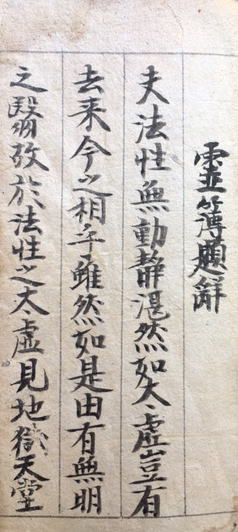 靈簿題辭
夫法性無動靜湛然如太虛豈有
去来今之相乎雖然如是由有無明
之翳故於法性之太虛見地獄天堂